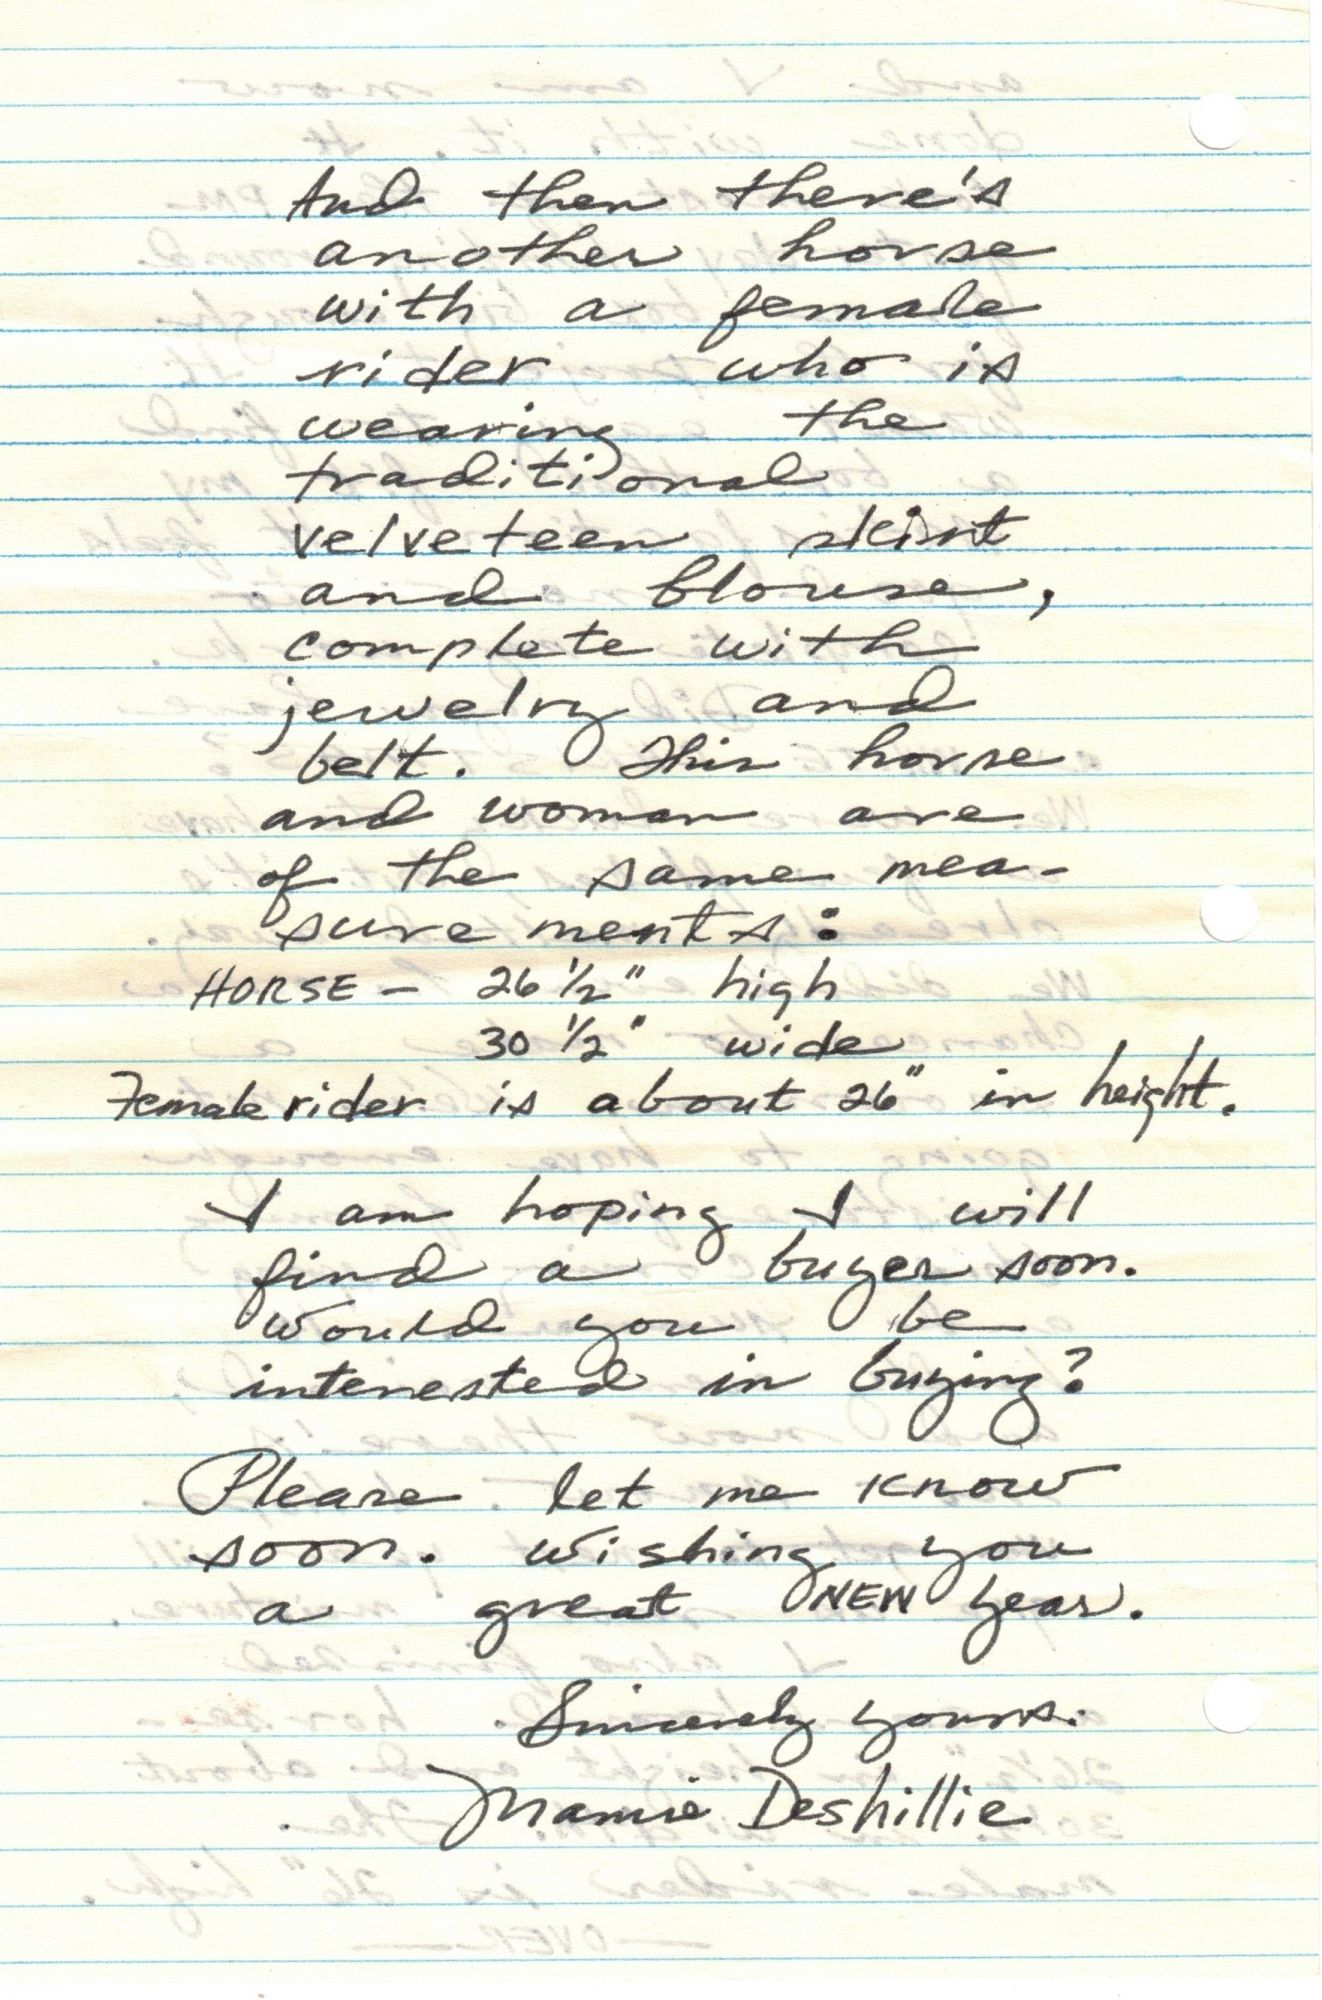 And then there's
another horse
with a female
rider who is
wearing the
traditional
velveteen skirt
and blouse,
complete with
jewelry and
belt. This horse
and woman are
of the same mea-
surements:
HORSE - 26 1/2" high
30 1/2" wide
Female rider is about 26" in height.
I am hoping I will
find a buyer soon.
Would you be
interested in buying?
Please let me know
soon. Wishing you
a great NEW Year.
Sincerely yours.
Mamie Deshillie